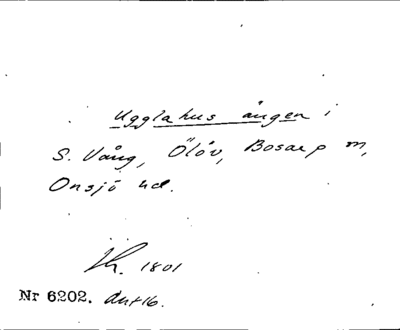 Ugglahus ången i
S. Vång, Ölöv, Bosarp m,
Onsjö hd.
1801
Nr 6202.